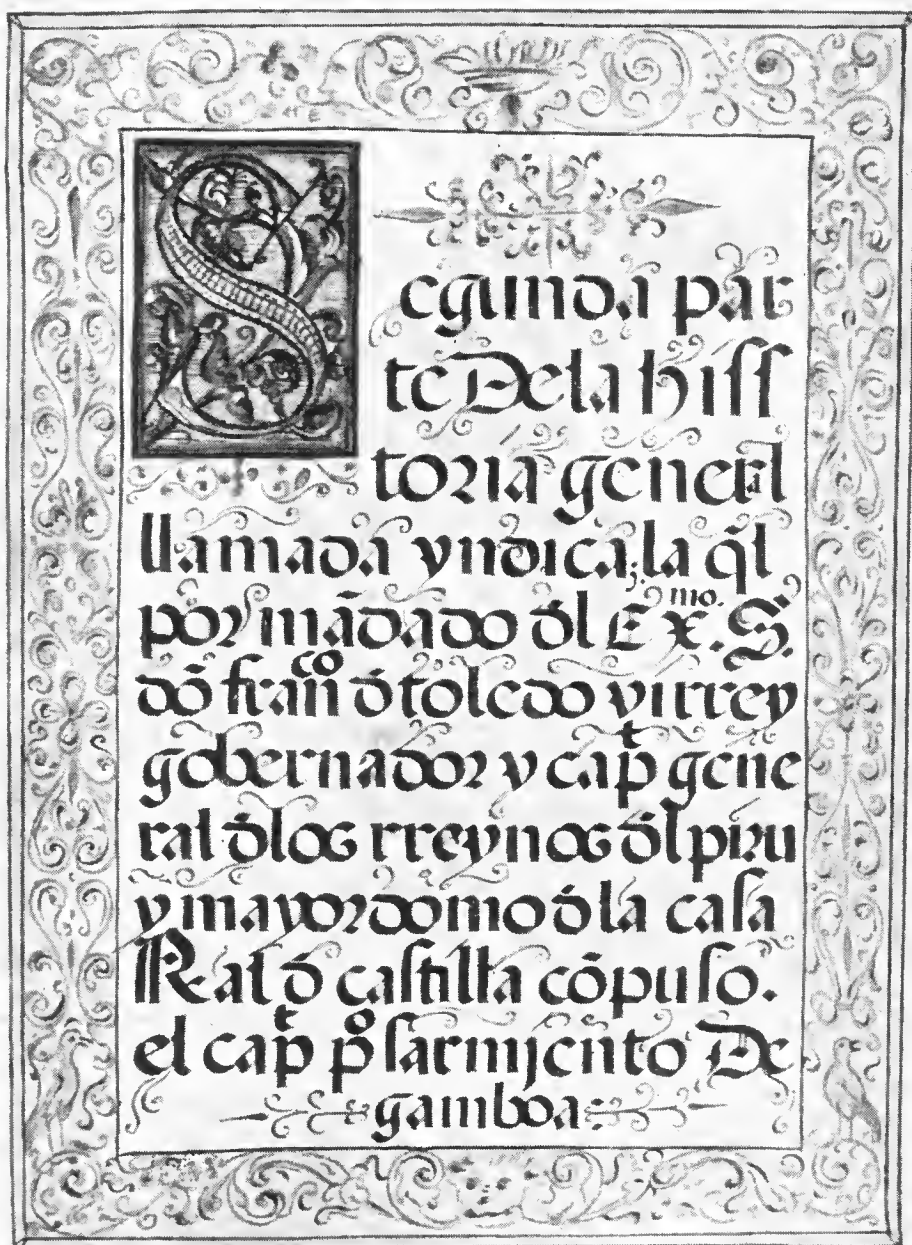 Segunda par
te De la hiſſ
toria general
llamada yndica; la q̄l
por mādado đl Exᵐᵒ. S.
dō franᶜᵒ đ toledo virrey
gobernador y capᵗ gene
ral đ los rreynos đl piru
y mayordomo đ la caſa
Real đ caſtilla cōpuſo.
el capᵗ pᵒ ſarmjento De
gamboa: